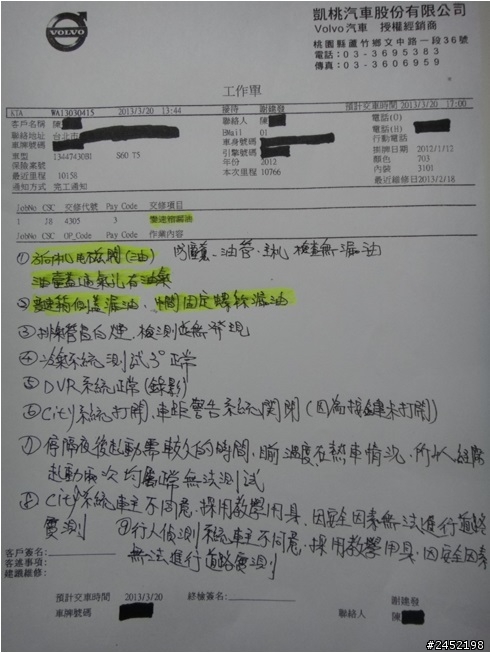 VOLVO
凱桃汽車股份有限公司
Volvo汽車 授權經銷商
桃園縣蘆竹鄉文中路一段36號
電話：03-3695383
傳真：03-3606959
工作單
KTA WA13030415 2013/3/20 13:44 接待 謝建發 預計交車時間 2013/3/20 17:00
客戶名稱 陳 聯絡人 陳 電話(O)
聯絡地址 台北市 EMail 01 電話(H)
車牌號碼 車身號碼 行動電話
車型 134474308I S60 T5 引擎號碼 掛牌日期 2012/1/12
保險案號 年份 2012 顏色 703
最近里程 10158 本次里程 10766 內裝 3101
通知方式 完工通知 最近維修日 2013/2/18
JobNo CSC 交修代號 Pay Code 交修項目
1 J8 4305 3 變速箱漏油
JobNo CSC OP_Code Pay Code 作業內容
油管、主机 檢查無漏油
油蓋通氣孔有油氣
② 變速箱側蓋漏油、中間固定螺絲漏油
③ 排氣管冒白煙，檢測並無發現
④ 冷氣系統測試3° 正常
⑤ DVR系統正常(錄影)
⑥ City系統打開，車距警告系統関閉(因為按鍵未打開)
⑦ 停隔夜後起動需較久的時間，目前溫度在熱車情況，所以
起動兩次均屬正常無法測試
⑧ City系統車主不同意，採用教學用具，因安全因素無法進行道路
實測 ⑨行人偵測系統車主不同意，採用教學用具，因安全因素
無法進行道路實測
客戶簽名：
客速事項：
建議維修：
預計交車時間 2013/3/20 終檢簽名： 謝建發
車牌號碼 聯絡人 陳
#2452198